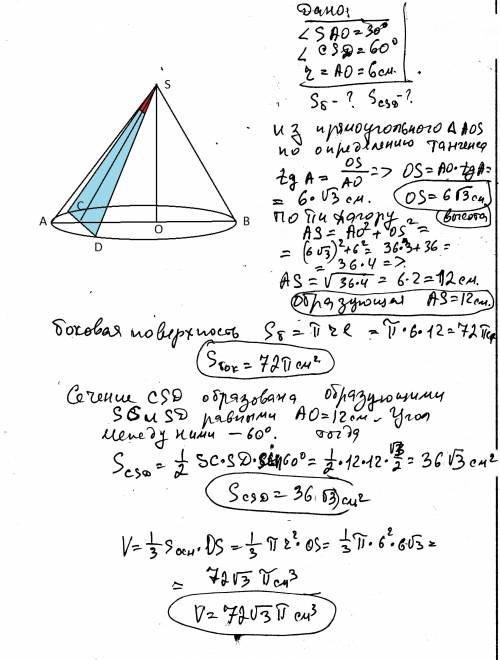 Дано:
∠SAO=30°
∠CSD=60°
r=AO=6см.
Sб-? Scsd-?
S
A
C
D
O
B
из прямоугольного ΔAOS
по определению тангенса
tgA=OS/AO=>OS=AO·tgA=
=6·√3см. OS=6√3см
высота
По Пифагору
AS=AO²+OS²=
=(6√3)²+6²=36·3+36=
=36·4=>
AS=√36·4=6·2=12см.
Образующая AS=12см.
боковая поверхность Sб=πrl=π·6·12=72π
Sбок=72πсм²
Сечение CSD образована образующими
SC и SD равными AO=12см. Угол
между ними-60°. тогда
Scsd=1/2 SC·SD·sin60°=1/2·12·12·√3/2=36√3см²
Scsd=36√3см²
V=1/3Sосн·OS=1/3πr²·OS=1/3π·6²·6√3=
=72√3πсм³
V=72√3πсм³